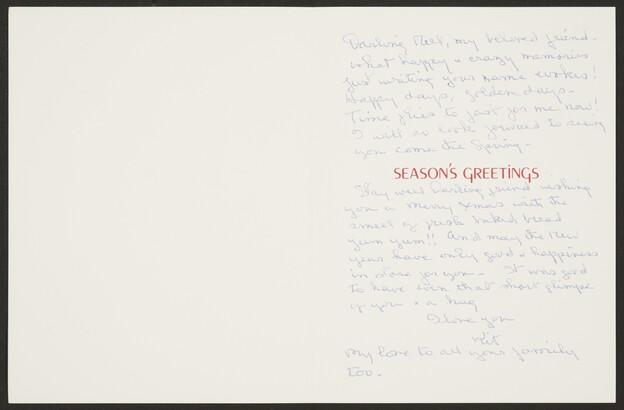 Darling Nell, my beloved friend -
what happy & crazy memories
just writing your name evokes!
Happy days, golden days -
Time flies to fast for me now!
I will so look forward to seeing
you come the Spring -
SEASON'S GREETINGS
Stay well Darling friend wishing
you a merry Xmas with the
smell of fresh baked bread
yum yum!! And may the New
year have only good & happiness
in store for you - It was good
to have even that short glimpse
of you & a hug
I love you
Kit
My love to all your family
too.